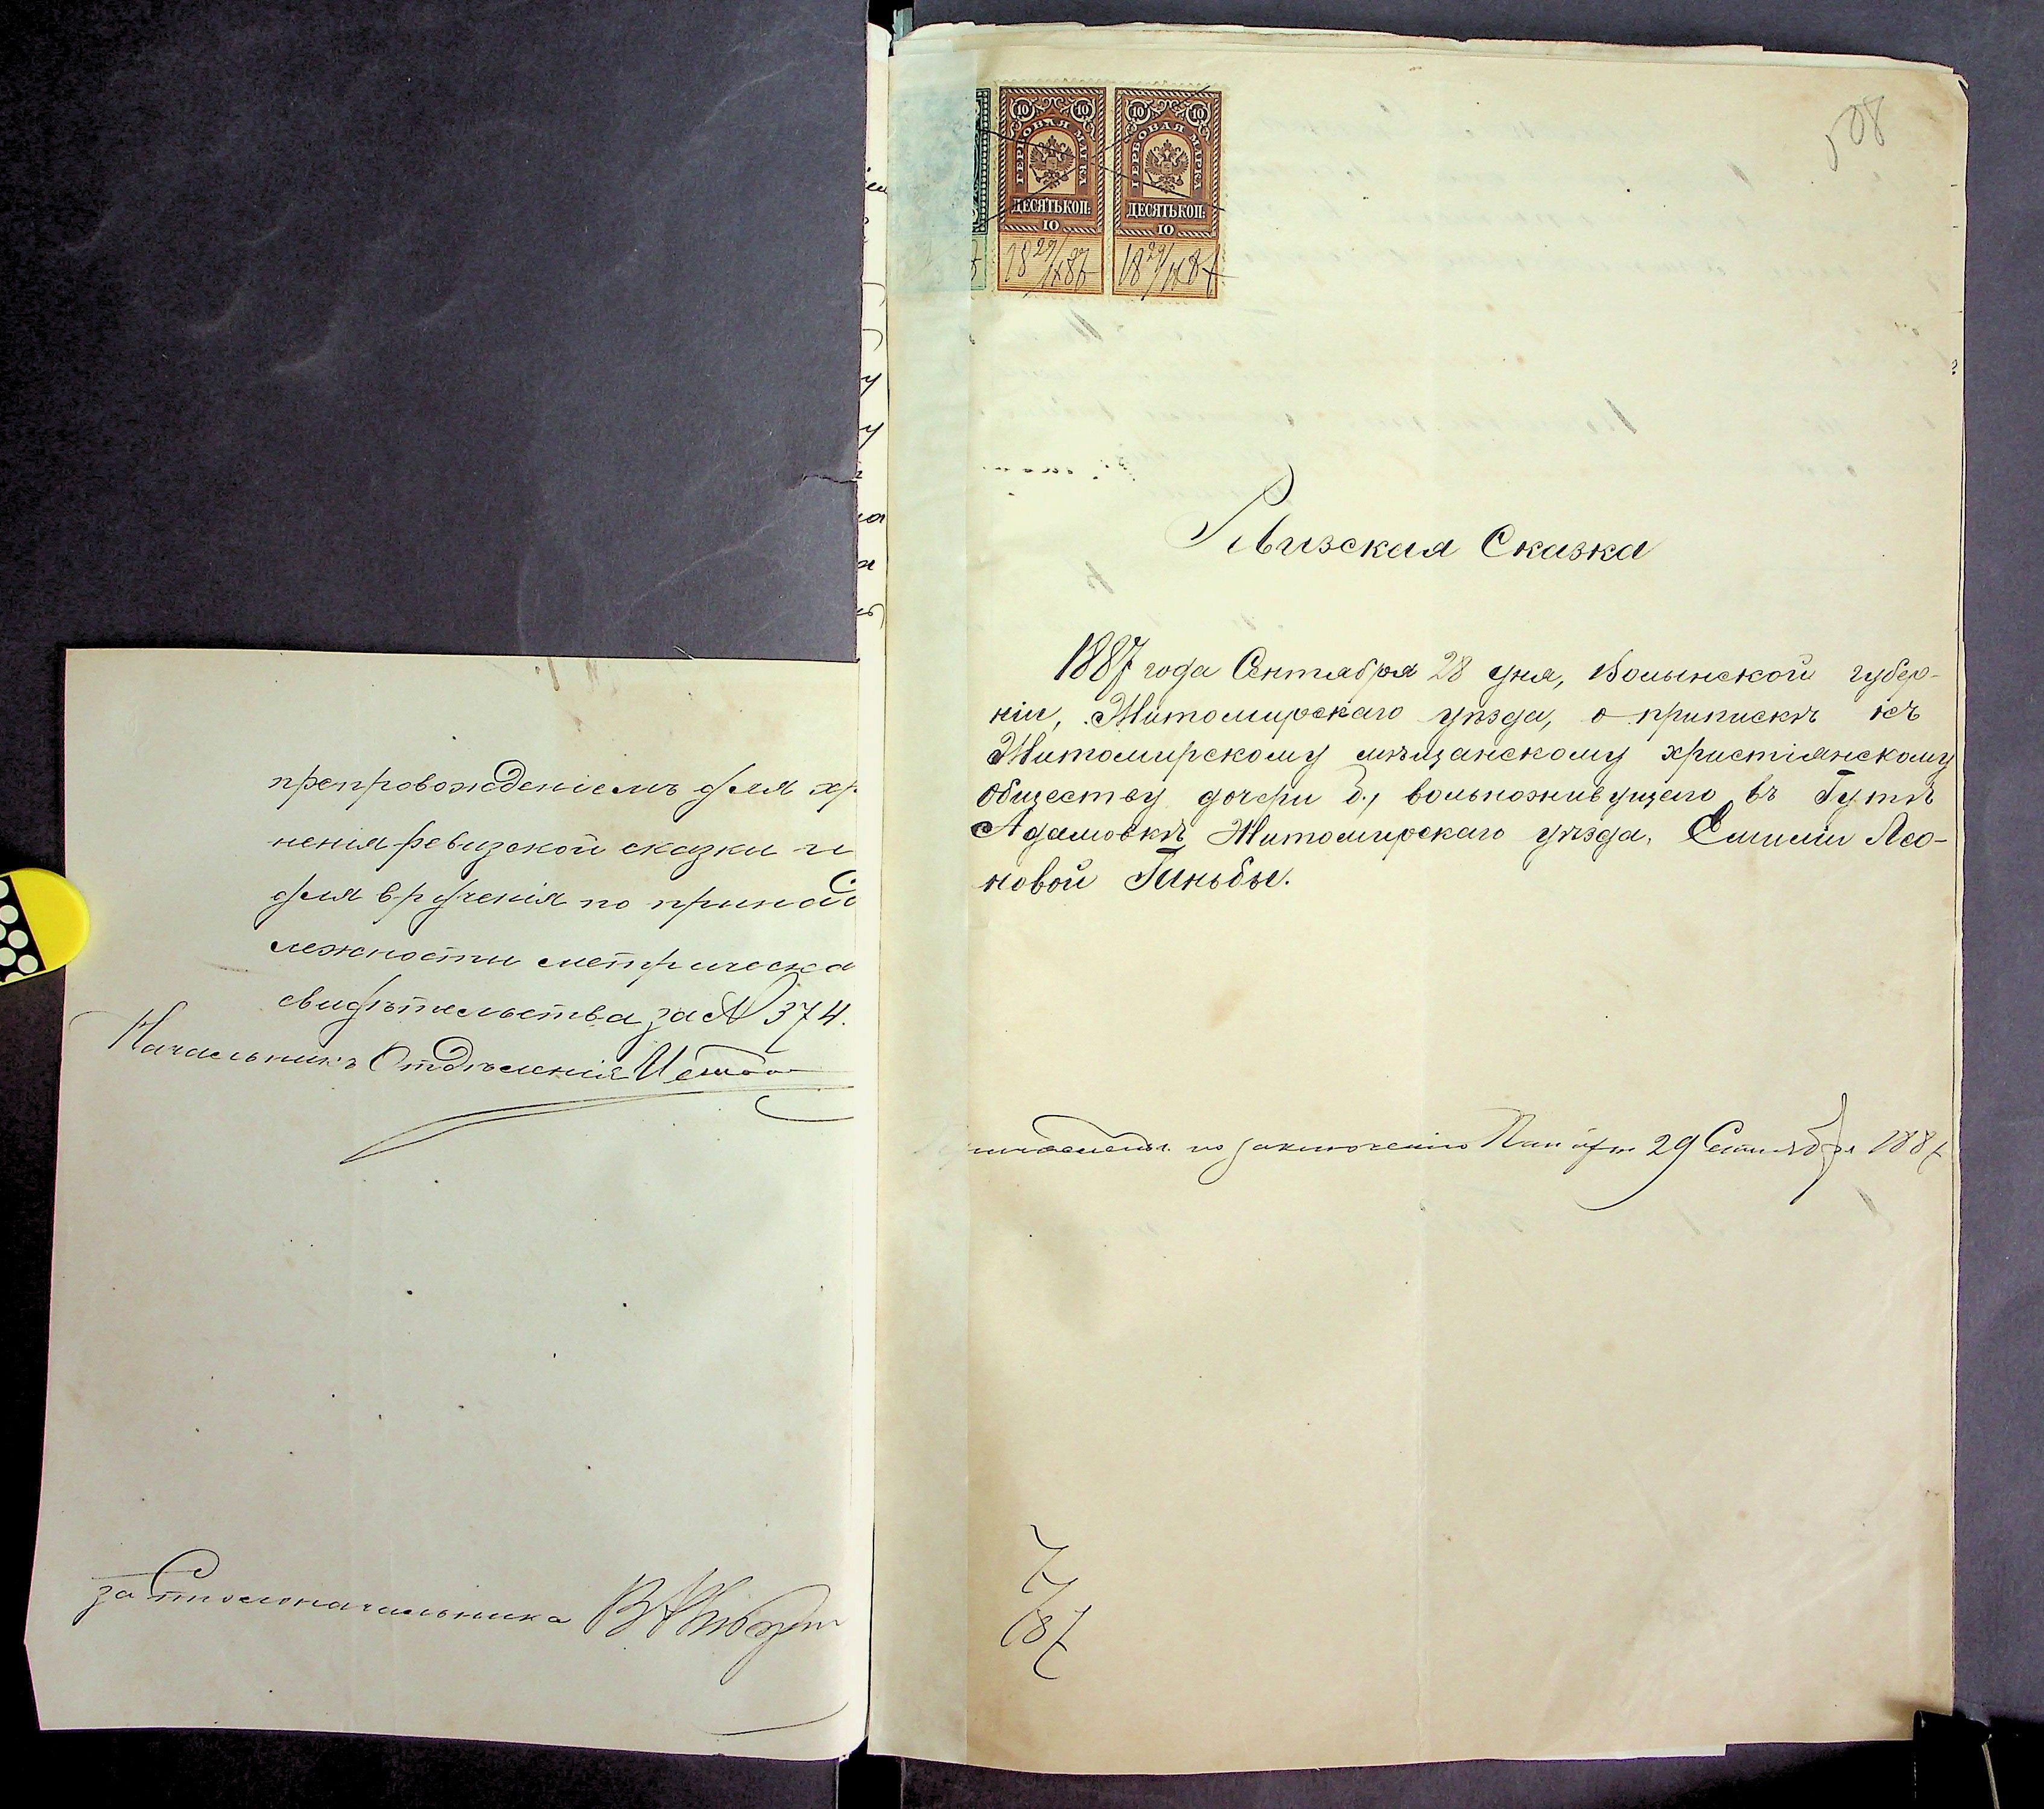 препровожденіемъ для хр
ненія ревизской сказки и
для врученія по принад
лежности метрическа
свидѣтельства за № 374.
Начальникъ Отдѣленія
за Столоначальника
508
10 10
ГЕРБОВАЯ МАРКА
ДЕСЯТЬ КОП.
10
18 29/IX 87
10 10
ГЕРБОВАЯ МАРКА
ДЕСЯТЬ КОП.
10
18 29/IX 87
Ревизская Сказка
1887 года Сентября 28 дня, Волынской губер-
ніи, Житомирскаго уѣзда, о припискѣ къ
Житомирскому мѣщанскому христіянскому
обществу дочери д., вольноживущаго въ Гутѣ
Адамовкѣ Житомирскаго уѣзда, Емиліи Лео-
новой Гиньбы.
по заключенію 29 Сентября 1887
7/187